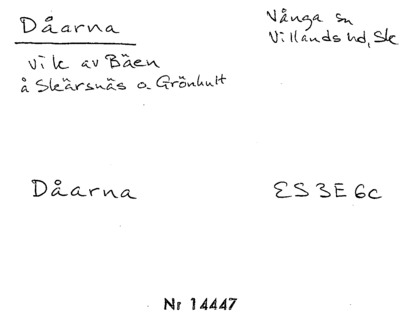 Dåarna
Vånga sn
Villands hd, Sk
vik av Bäen
å Skärsnäs o. Grönhult
Dåarna
ES 3E 6c
Nr 14447